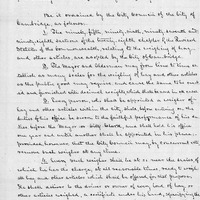 Be it ordained by the City Council of the City of
Cambridge, as follows.
1. The ninety fifth, ninety sixth, ninety seventh, and
ninety eighth sections of the twenty eighth chapter of the Revised
Statutes of the Commonwealth, relating to the weighing of hay
and other articles, are adopted by the City of Cambridge.
2. The Mayor and Aldermen may from time to time es-
tablish as many scales for the weighing of hay and other articles
as the public good may require, and cause the same to be
and furnished with decimal weights
3. Every person, who shall be appointed a weigher of
hay and other articles within the City, shall before entering on the
duties of the office be sworn to the faithful performance of his du-
ties before the Mayor or City Clerk, and shall hold his office
one year and until another shall be appointed in his place
provided, however, that the City Council may by concurrent
remove such weigher at any time.
4. Every such weigher shall be at or near the scales of
which he has the charge, at all reasonable times, ready to weigh
all hay and other articles which shall be offered for that purpose.
He shall deliver to the driver or owner of every load of hay or
other articles weighed, a certificate under his hand, specifying the